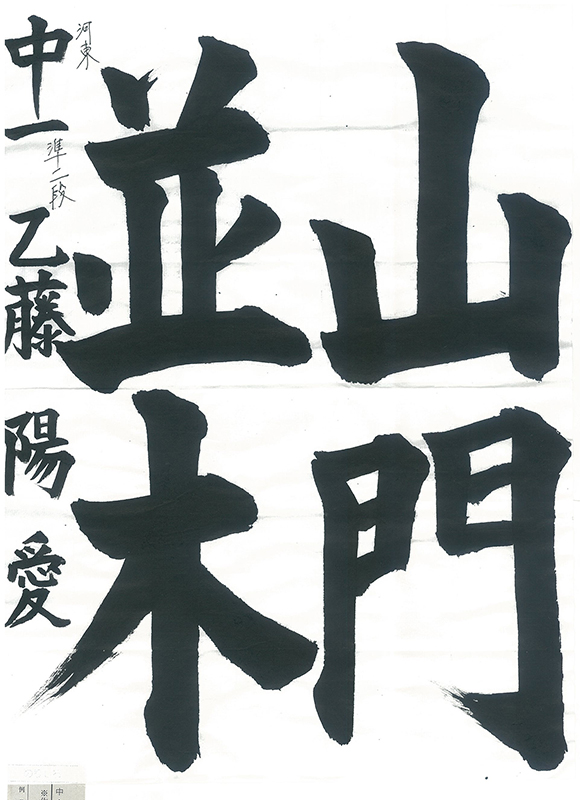 山門
並木
河東
中一 準二段 乙藤 陽愛